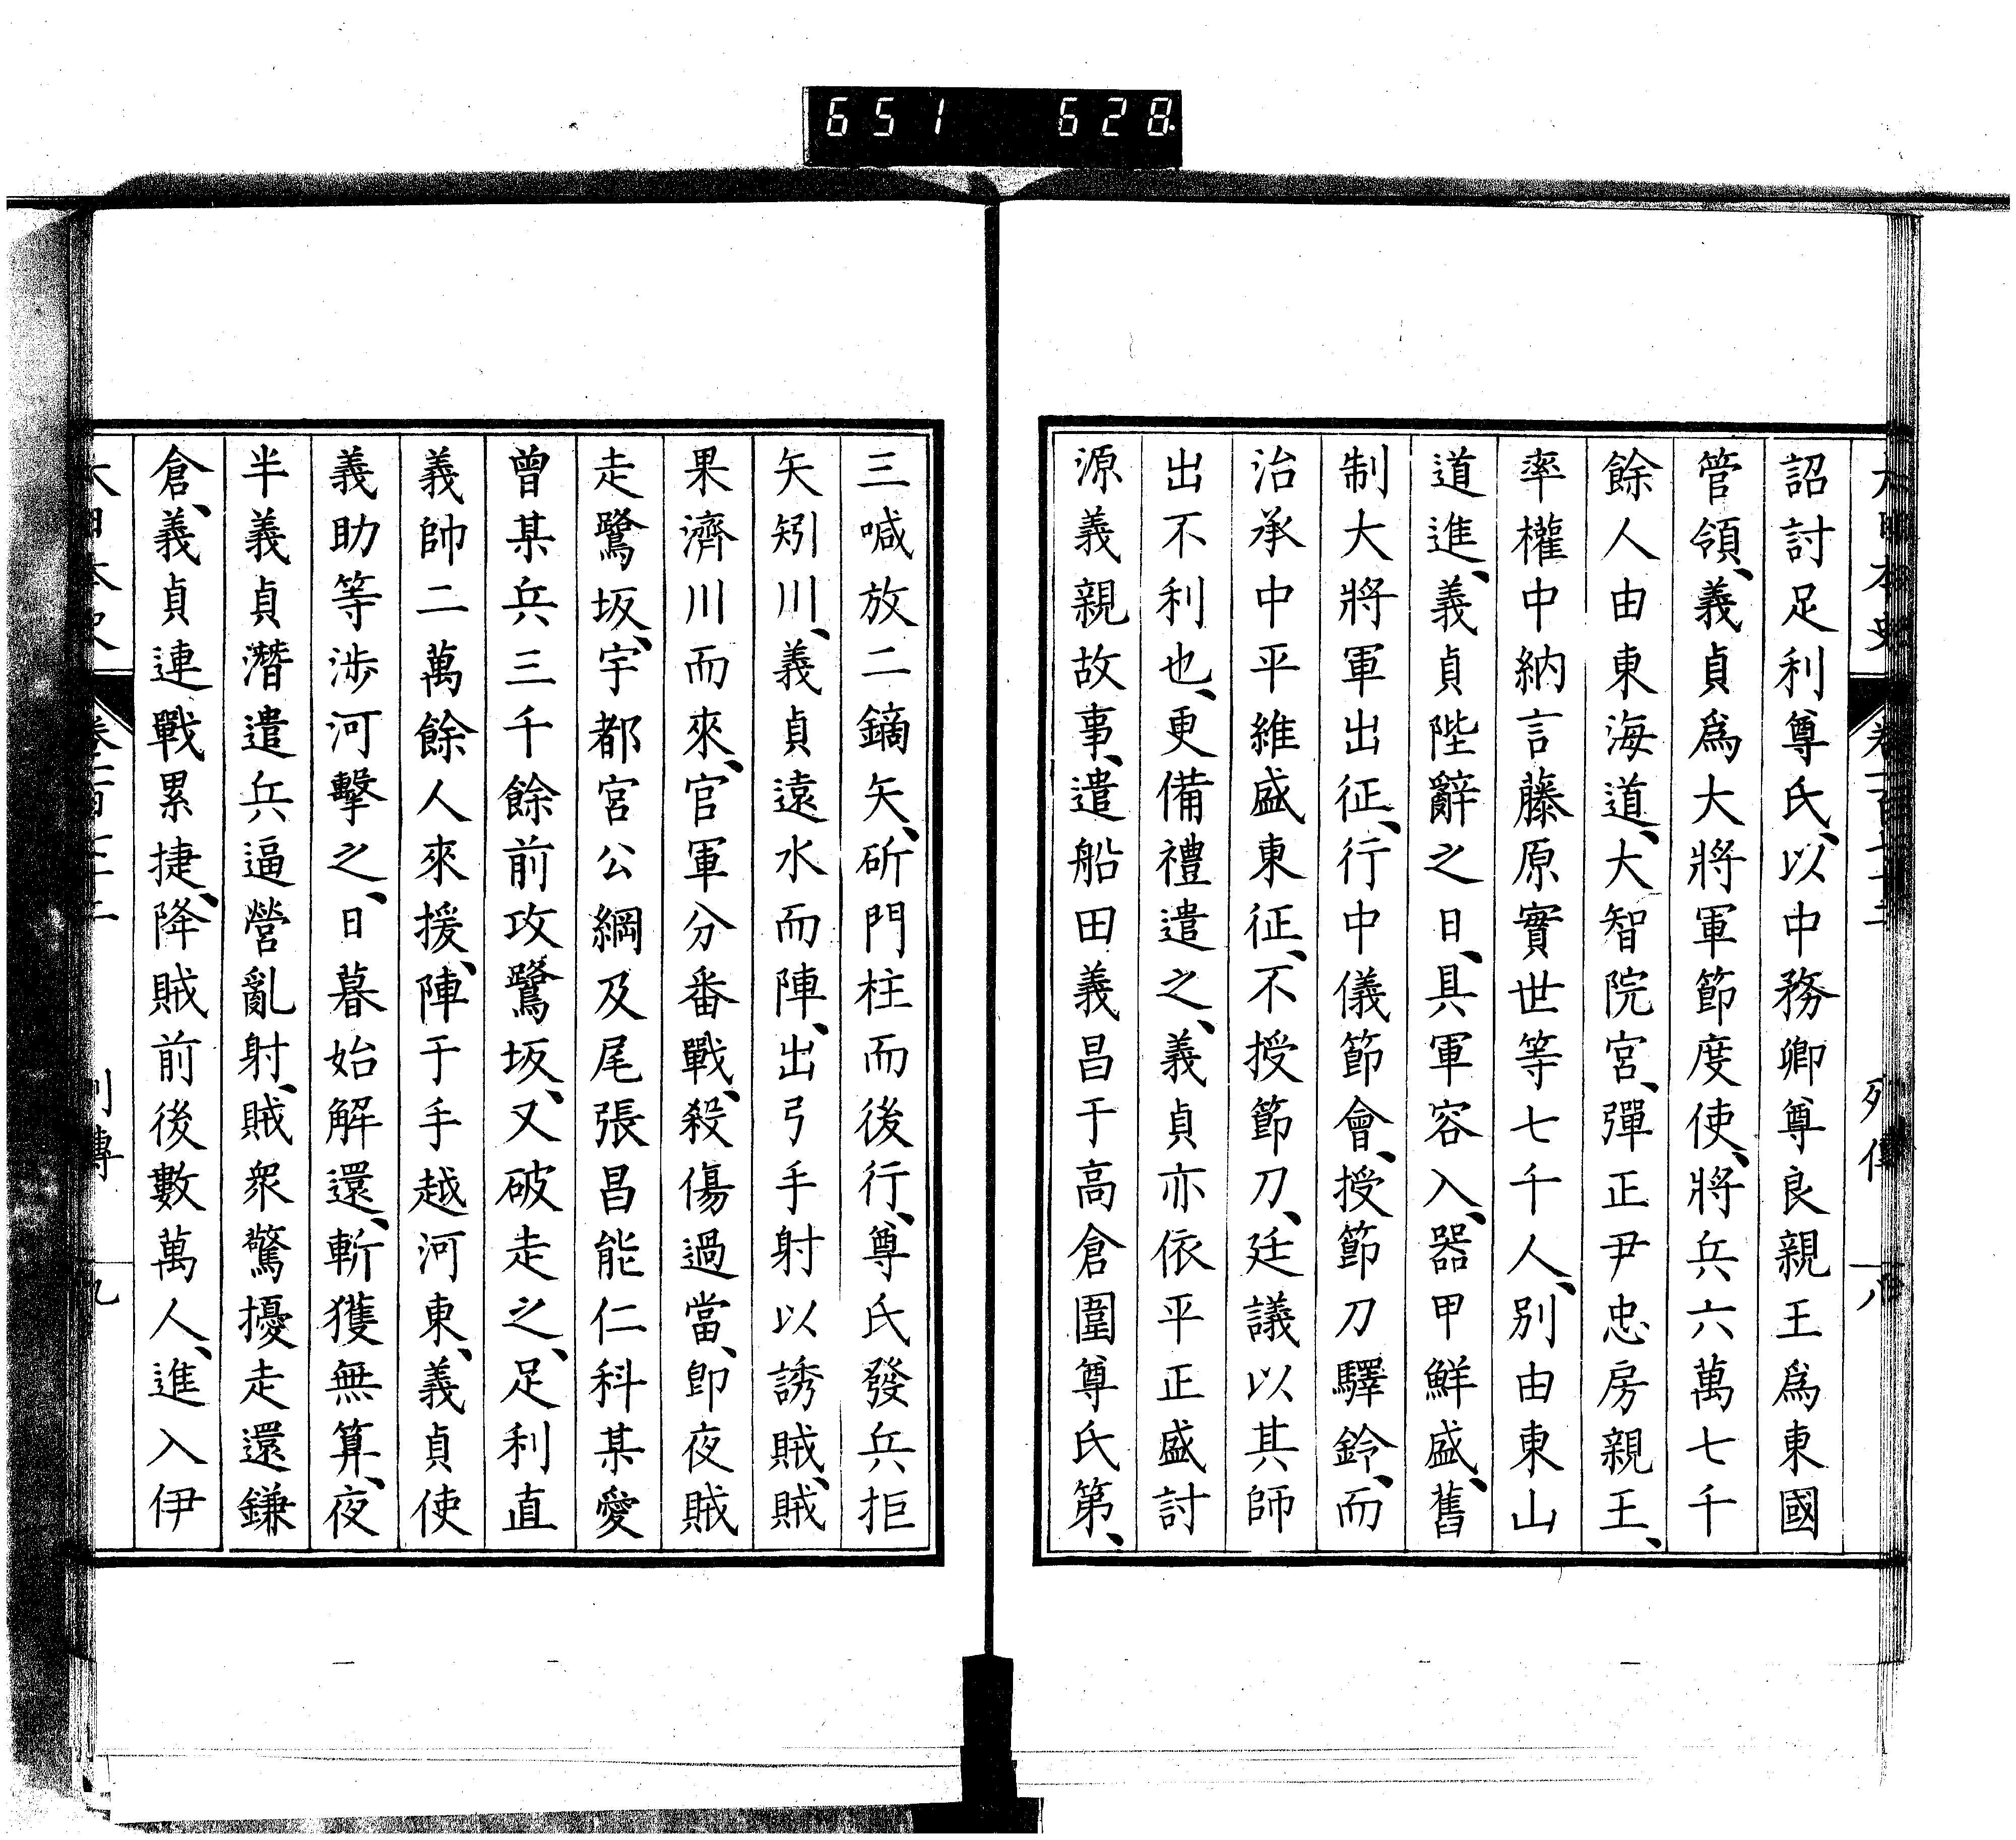 651 628
詔討足利尊氏、以中務卿尊良親王爲東國
管領、義貞爲大將軍節度使、將兵六萬七千
餘人由東海道、大智院宮、彈正尹忠房親王、
率權中納言藤原實世等七千人、別由東山
道進、義貞陛辭之日、具軍容入、器甲鮮盛、舊
制大將軍出征、行中儀節會、授節刀驛鈴、而
治承中平維盛東征、不授節刀、廷議以其師
出不利也、更備禮遣之、義貞亦依平正盛討
源義親故事、遣船田義昌于高倉圍尊氏第、
三喊放二鏑矢、斫門柱而後行、尊氏發兵拒
矢矧川、義貞遠水而陣、出弓手射以誘賊、賊
果濟川而來、官軍分番戰、殺傷過當、卽夜賊
走鷺坂、宇都宮公綱及尾張昌能仁科某愛
曾某兵三千餘前攻鷺坂、又破走之、足利直
義帥二萬餘人來援、陣于手越河東、義貞使
義助等涉河擊之、日暮始解還、斬獲無算、夜
半義貞潛遣兵逼營亂射、賊衆驚擾走還鎌
倉、義貞連戰累捷、降賊前後數萬人、進入伊